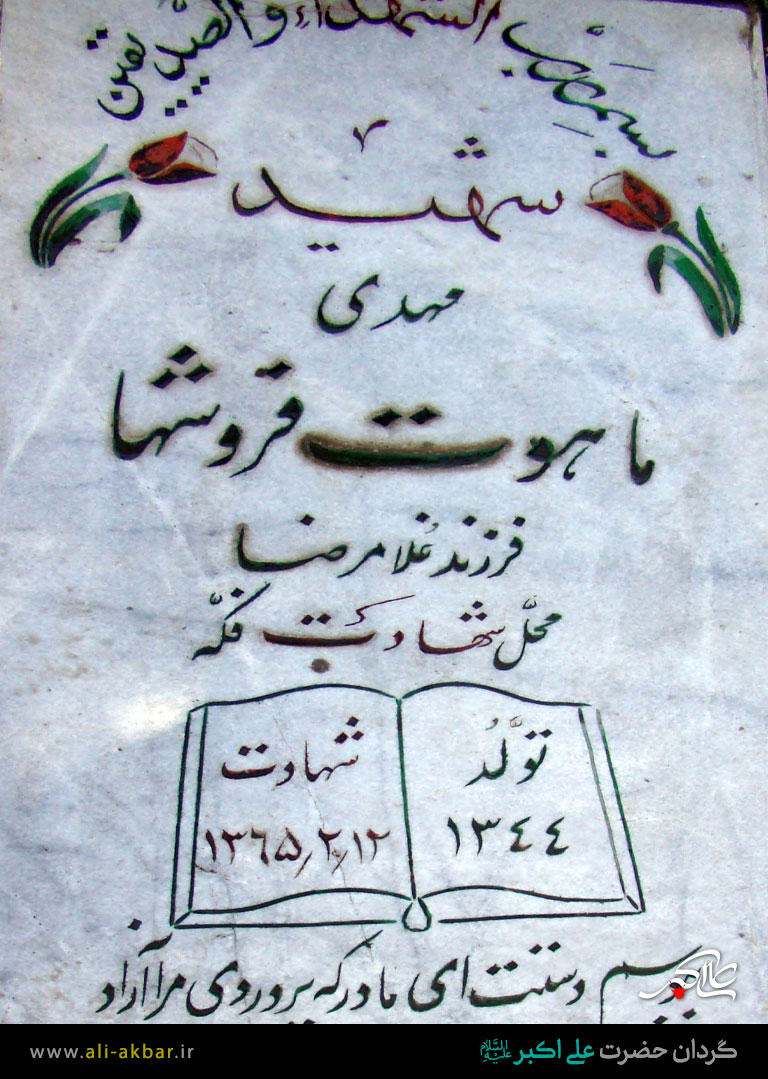 بسم رب الشهداء والصدیقین
شهید
مهدی
ماهوت فروشها
فرزند غلامرضا
محلّ شهادت فکّه
تولّد
۱۳۴۴
شهادت
۱۳۶۵٫۲٫۱۲
ببوسم دستت ای مادر که پروردی مرا آزاد
گردان حضرت علی اکبر علیه السلام
www.ali-akbar.ir